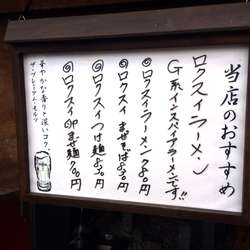 当店のおすすめ
ロクスイラーメン
G系インスパイアラーメンです!!
◎ロクスイラーメン 780円
◎ロクスイまぜそば 850円
◎ロクスイつけ麺 850円
◎ロクスイ卵まぜ麺 900円
華やかな香りと深いコク。
ザ・プレミアム・モルツ